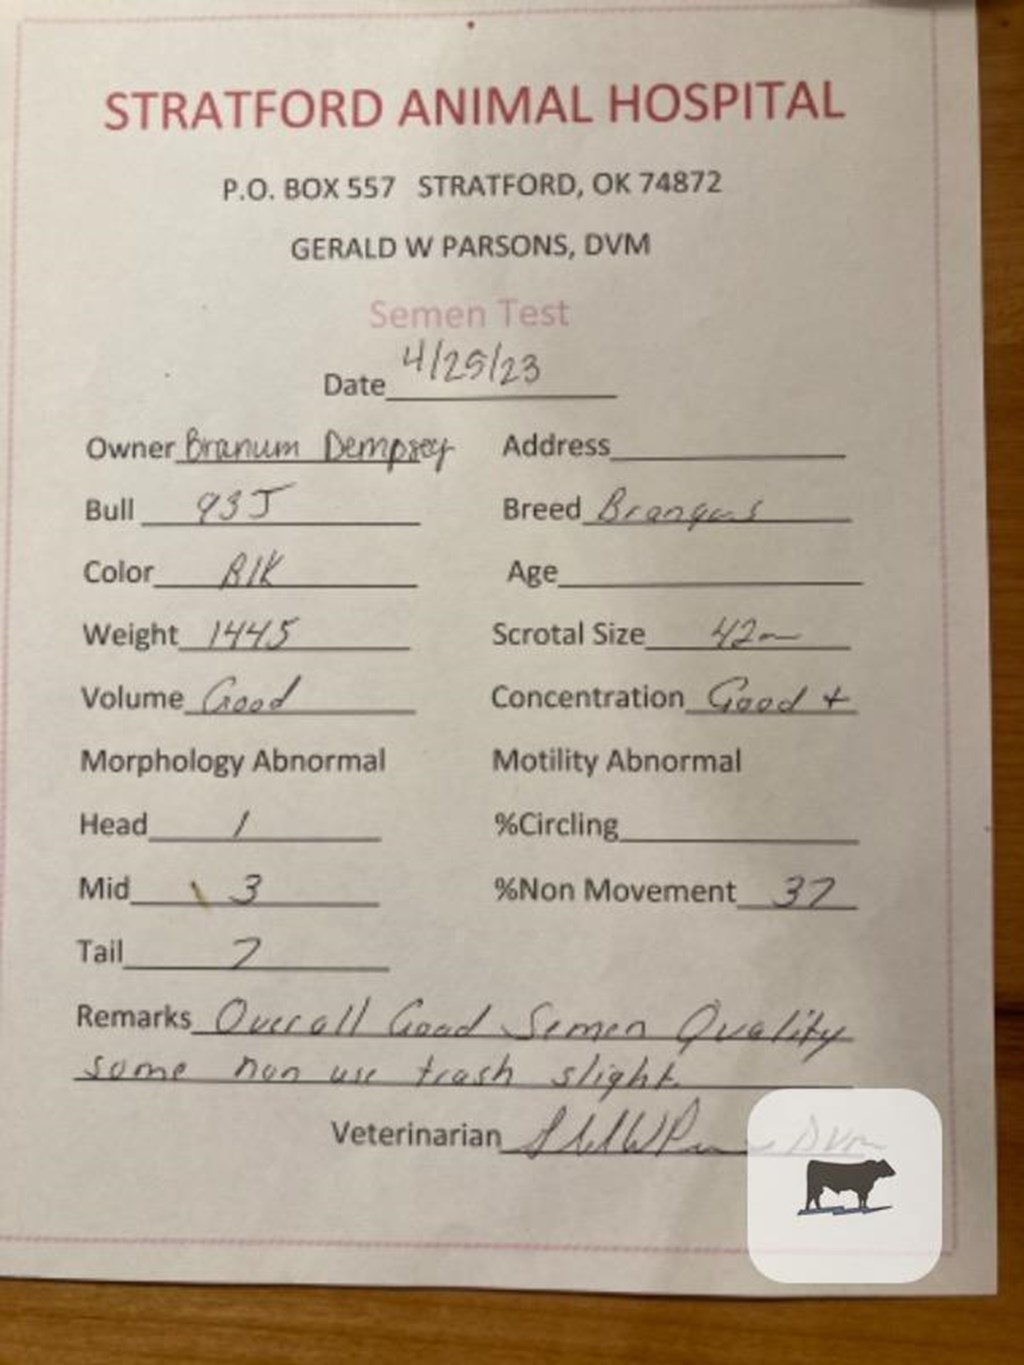 STRATFORD ANIMAL HOSPITAL
P.O. BOX 557 STRATFORD, OK 74872
GERALD W PARSONS, DVM
Semen Test
Date 4/25/23
Owner Branum Dempsey Address
Bull 93J Breed Brangus
Color Blk Age
Weight 1445 Scrotal Size 42
Volume Good Concentration Good +
Morphology Abnormal Motility Abnormal
Head 1 %Circling
Mid 3 %Non Movement 37
Tail 7
Remarks Overall Good Semen Quality
some non use trash slight
Veterinarian DVM